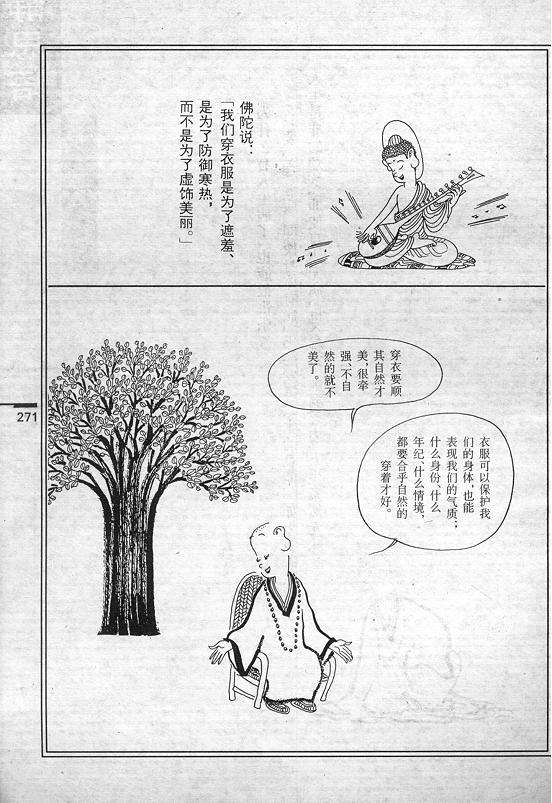 佛陀说：
「我们穿衣服是为了遮羞、
是为了防御寒热，
而不是为了虚饰美丽。」
穿衣要顺
其自然才
美，很牵
强、不自
然的就不
美了。
衣服可以保护我
们的身体，也能
表现我们的气质；
什么身份、什么
年纪、什么情境，
都要合乎自然的
穿着才好。
271